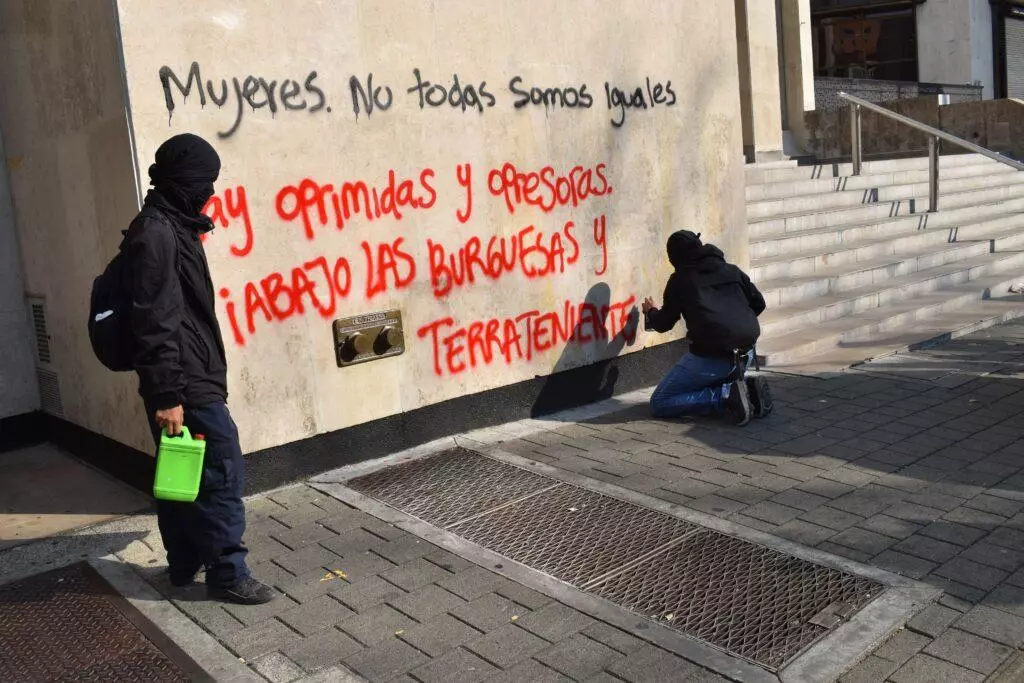 Mujeres. No todas somos iguales
Hay oprimidas y opresoras.
¡ABAJO LAS BURGUESAS y
TERRATENIENTE